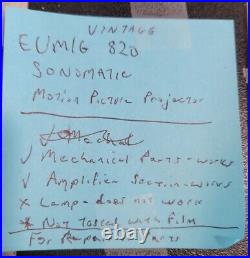 VINTAGE
EUMIG 820
SONOMATIC
Motion Picture Projector
✓ Mechanical Parts-works
✓ Amplifier Section-works
x Lamp-does not work
* Not Tested with Film
For Repair or Parts